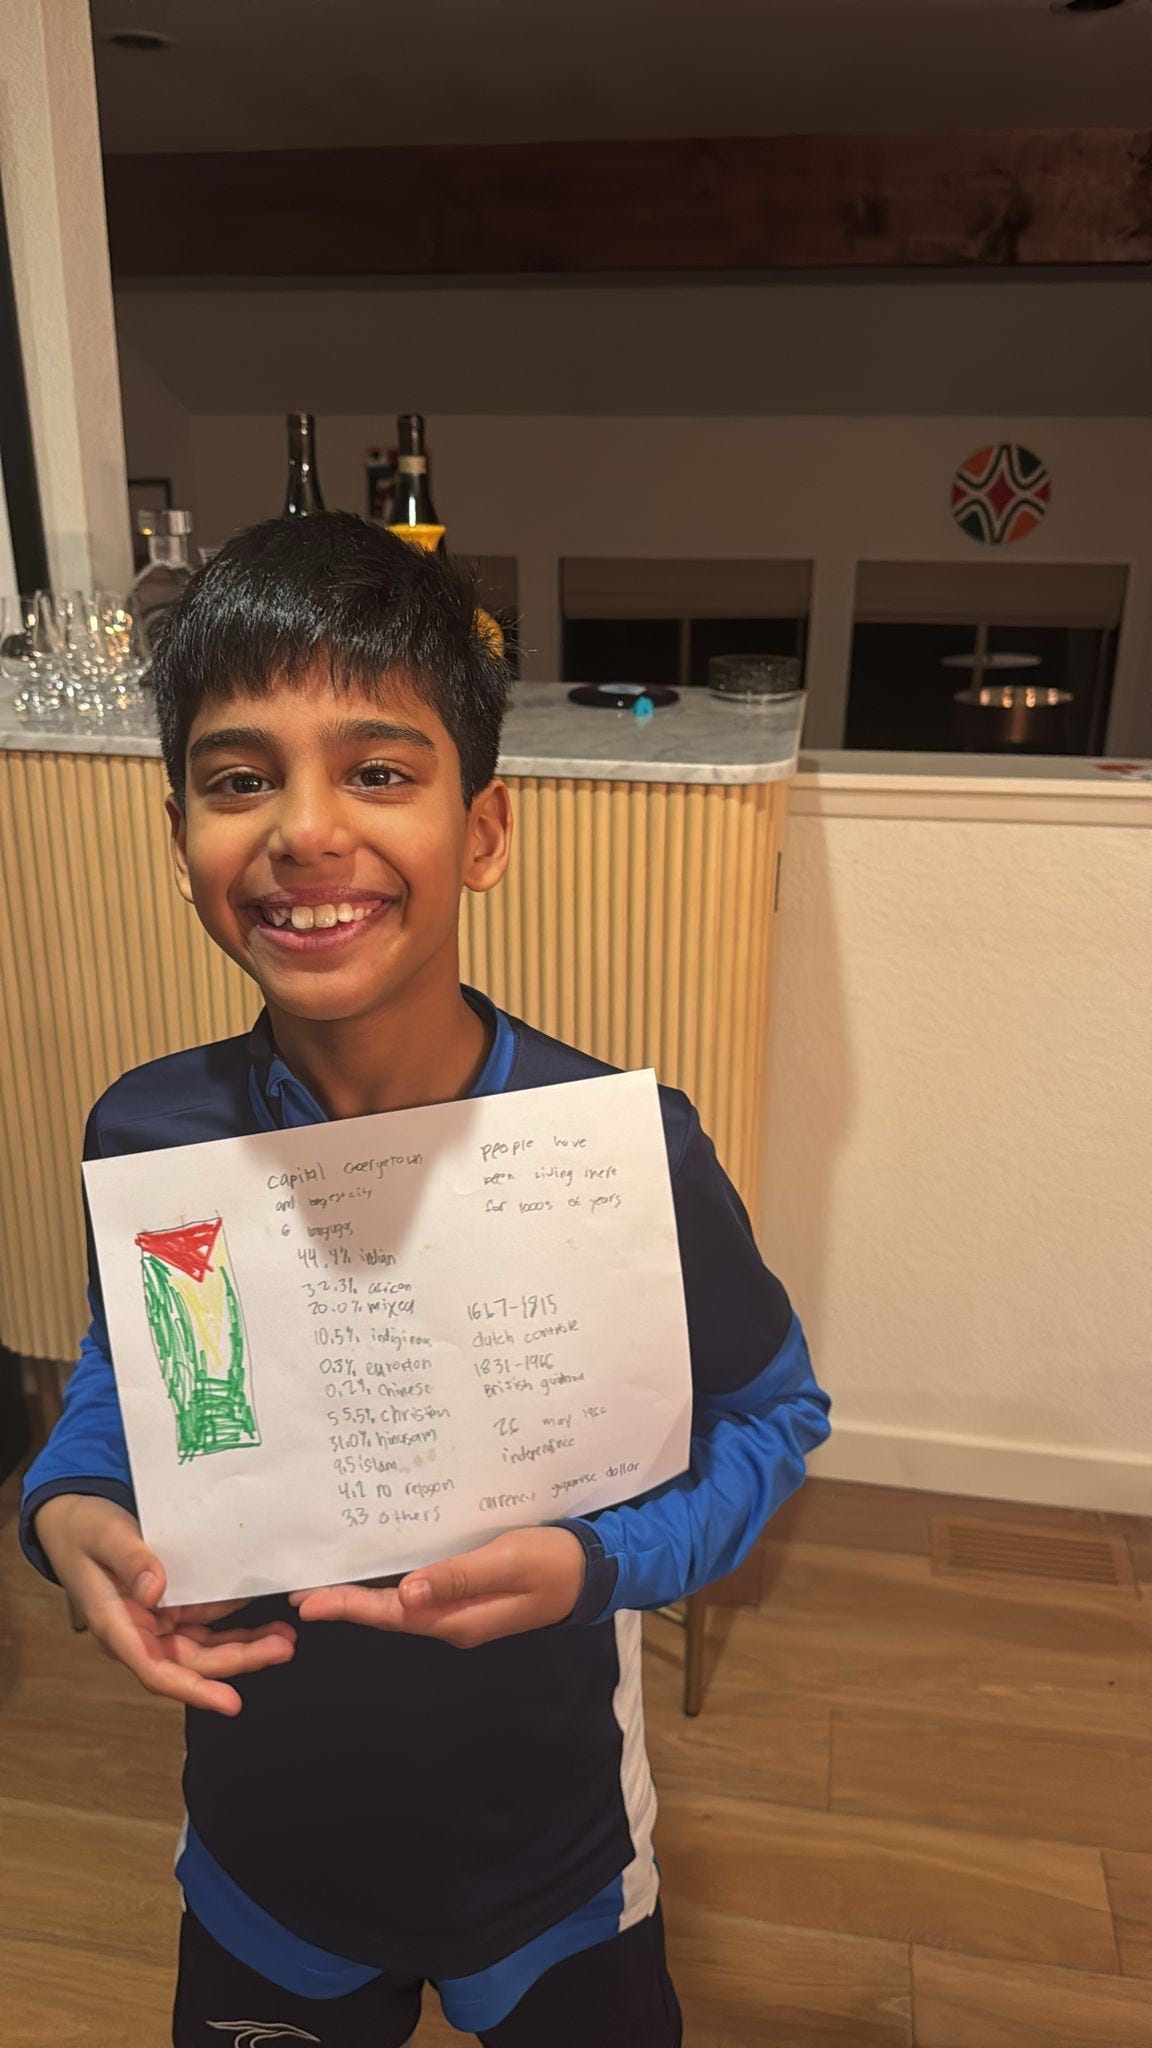 capital Goergetown
and bigest city
6 languges
44.4% indian
32.3% african
20.0% mixed
10.5% indiginous
0.3% european
0.2% chinese
55.5% christian
31.0% hinusam
9.5 islam
4.2 no
3.3 others
people have
been living there
for 1000s of years
1667-1815
dutch controle
1831-1966
British
26 may 1966
currency dollar